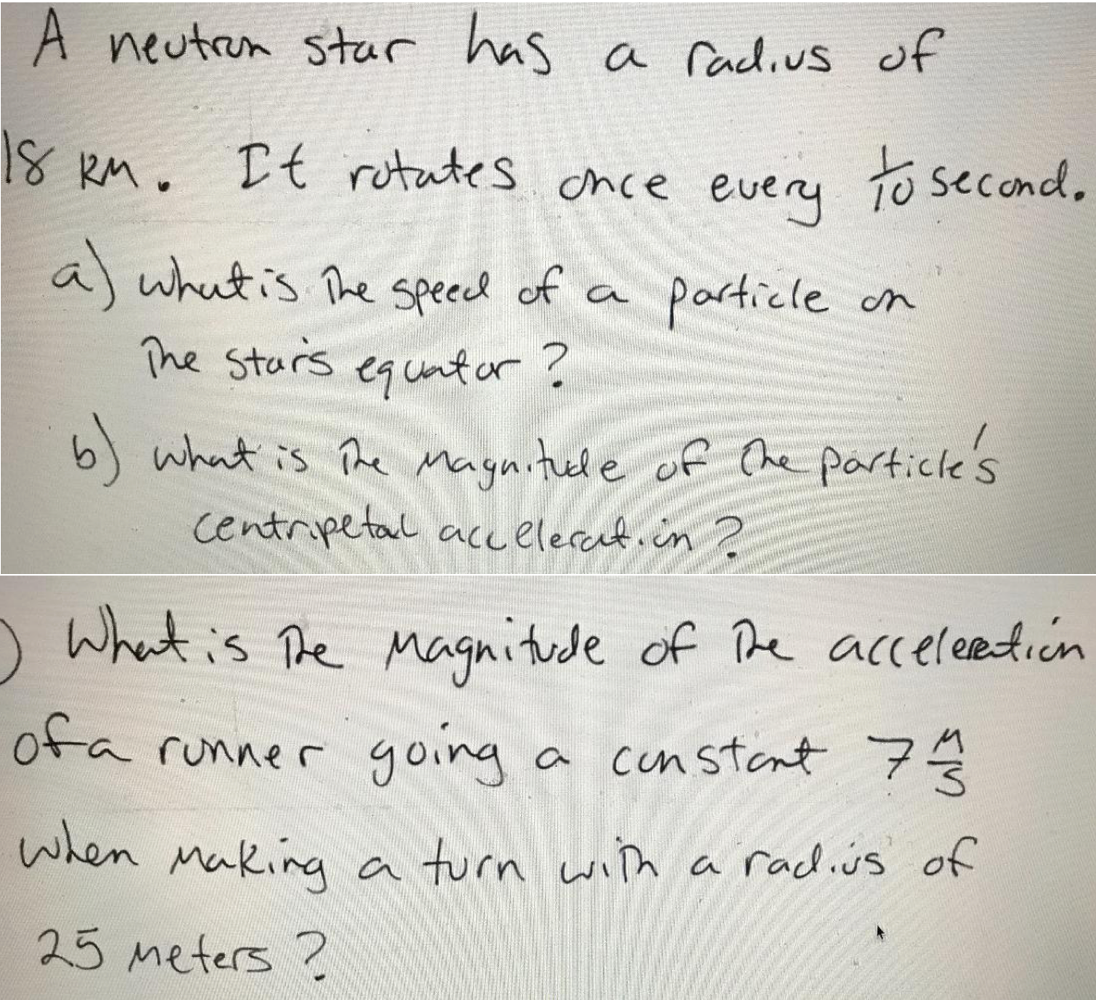 A neutron star has a radius of
18 km. It rotates once every 1/10 second.
a) what is The speed of a particle on
The star's equator?
b) what is The Magnitude of The particle's
centripetal acceleration?
) What is The Magnitude of The acceleration
of a runner going a constant 7 M/S
when Making a turn with a radius of
25 Meters?